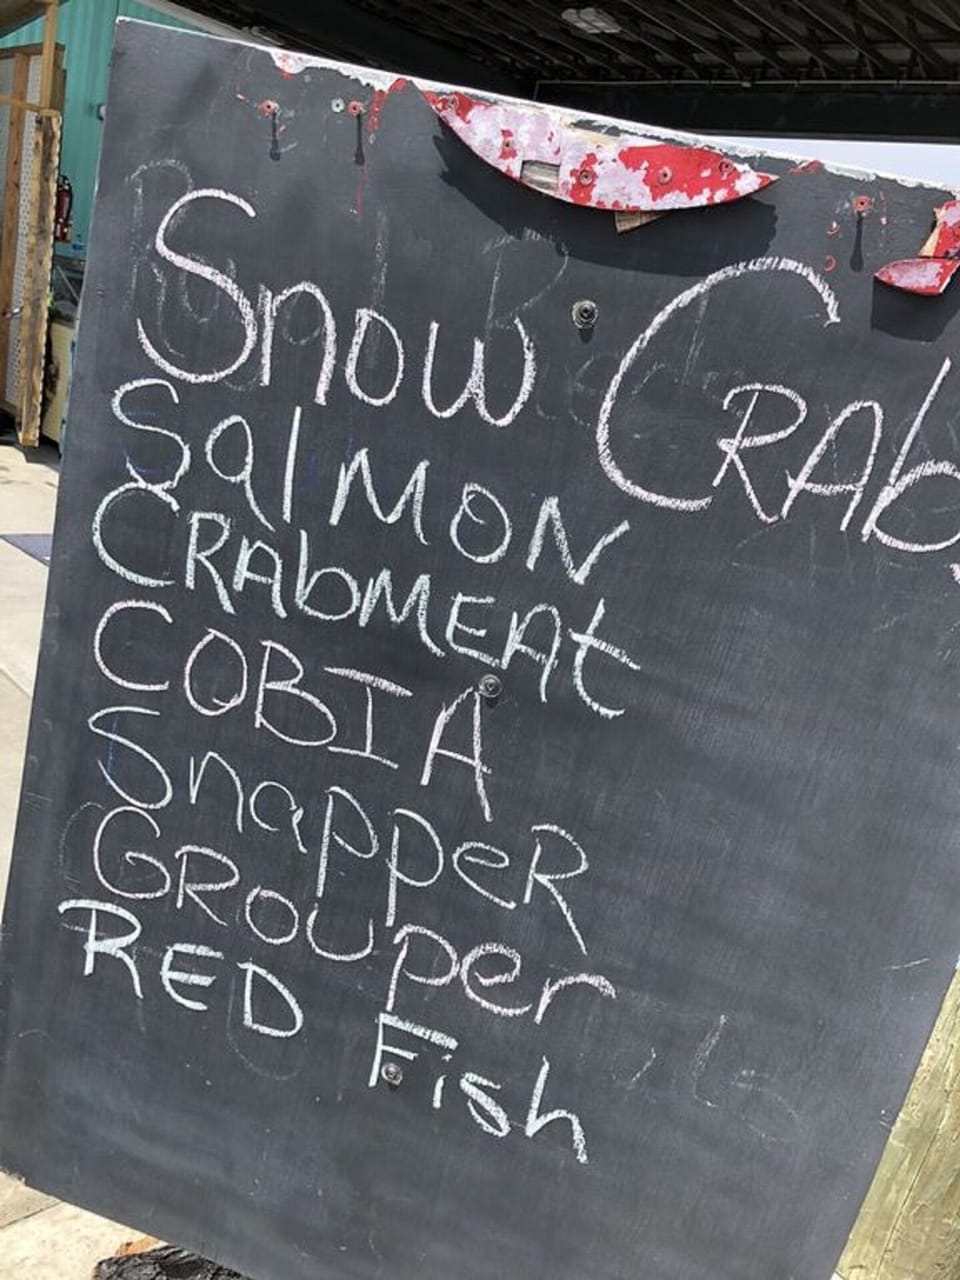 Snow CRAb
SalMON
CRAbMEAt
COBIA
SnappeR
GROUper
RED Fish